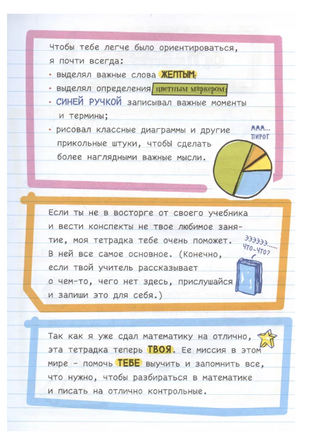 Чтобы тебе легче было ориентироваться,
я почти всегда:
· выделял важные слова ЖЕЛТЫМ;
· выделял определения цветным маркером;
· СИНЕЙ РУЧКОЙ записывал важные моменты
и термины;
· рисовал классные диаграммы и другие
прикольные штуки, чтобы сделать
более наглядными важные мысли.
МММ...
ПИРОГ
Если ты не в восторге от своего учебника
и вести конспекты не твое любимое заня-
тие, моя тетрадка тебе очень поможет.
В ней все самое основное. (Конечно,
если твой учитель рассказывает
о чем-то, чего нет здесь, прислушайся
и запиши это для себя.)
ЭЭЭЭЭЭ...
ЧТО-ЧТО?
Так как я уже сдал математику на отлично,
эта тетрадка теперь ТВОЯ. Ее миссия в этом
мире – помочь ТЕБЕ выучить и запомнить все,
что нужно, чтобы разбираться в математике
и писать на отлично контрольные.